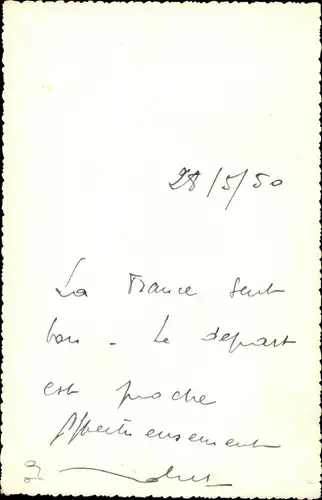 28/5/50
La France sent
bon - Le depart
est proche
Affectueusement